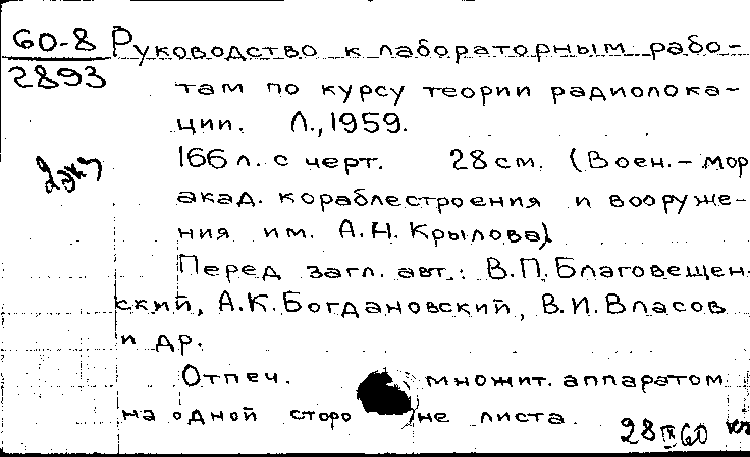 60-8 Руководство к лабораторным рабо-
2893
там по курсу теории радиолока-
ции. Л., 1959.
166 л. с черт. 28 см. (Воен.-мор
акад. кораблестроения и вооруже-
ния им. А.Н. Крылова).
Перед загл. авт.: В.П. Благовещен-
ский, А.К. Богдановский, В.И. Власов
и др.
Отпеч. множит. аппаратом
на одной сторо не листа.
2 экз
28 IX 60